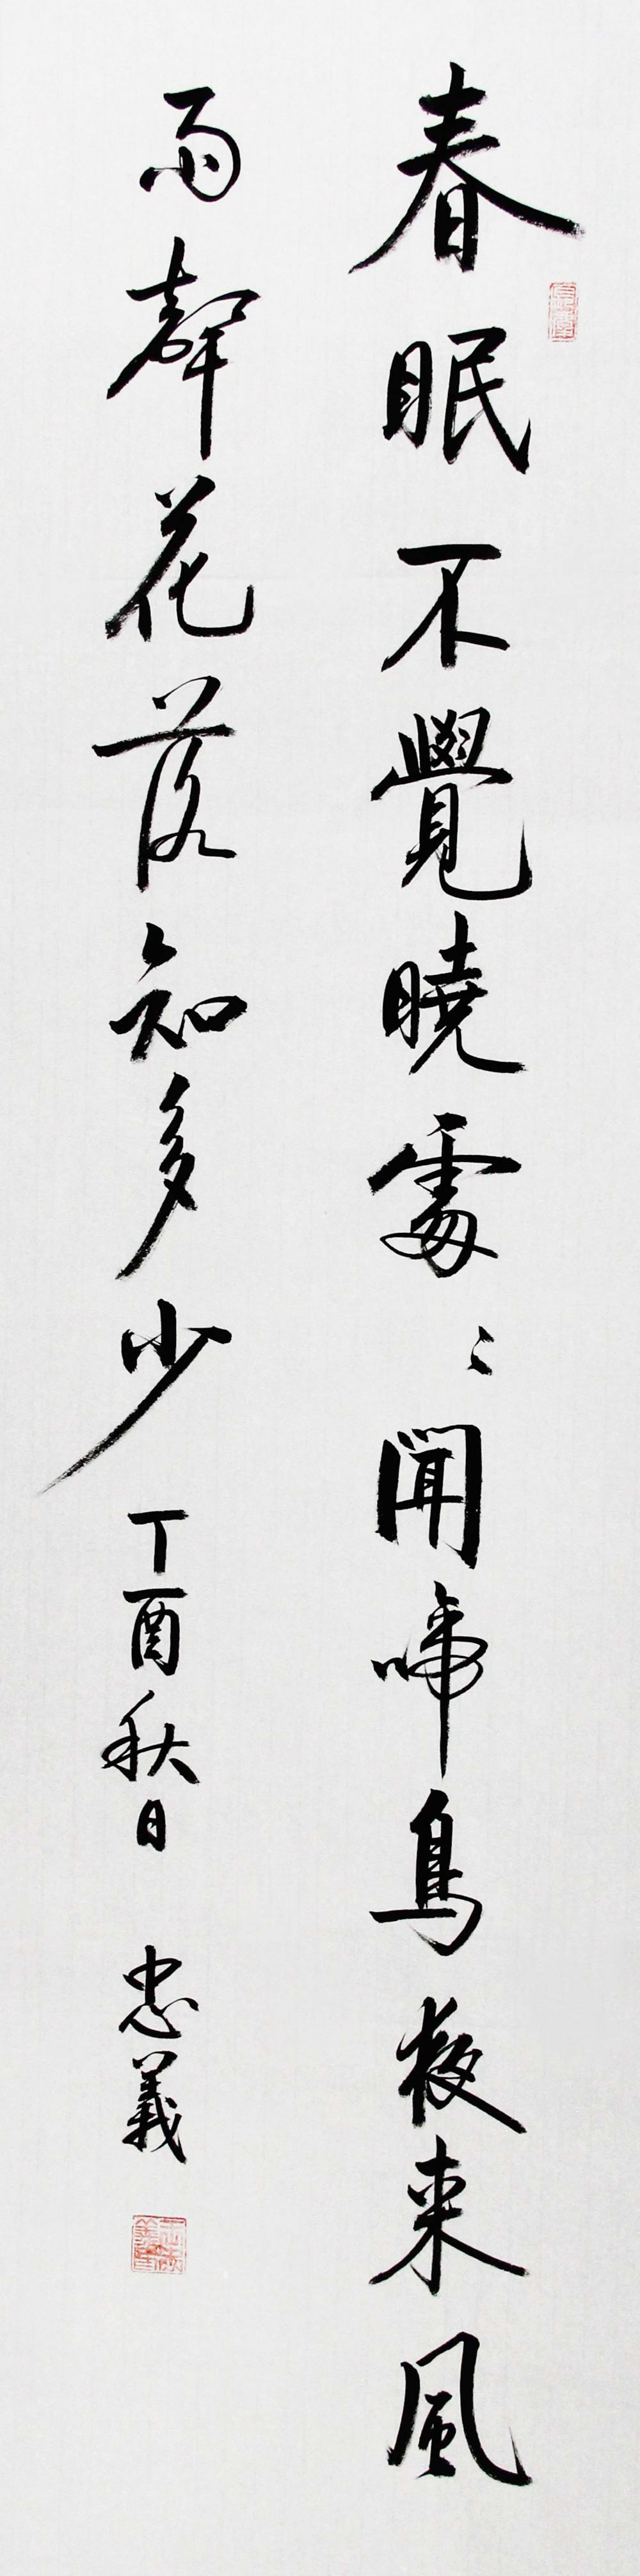 春眠不覺曉處〻聞啼鳥夜来風
雨聲花落知多少 丁酉秋日 忠義